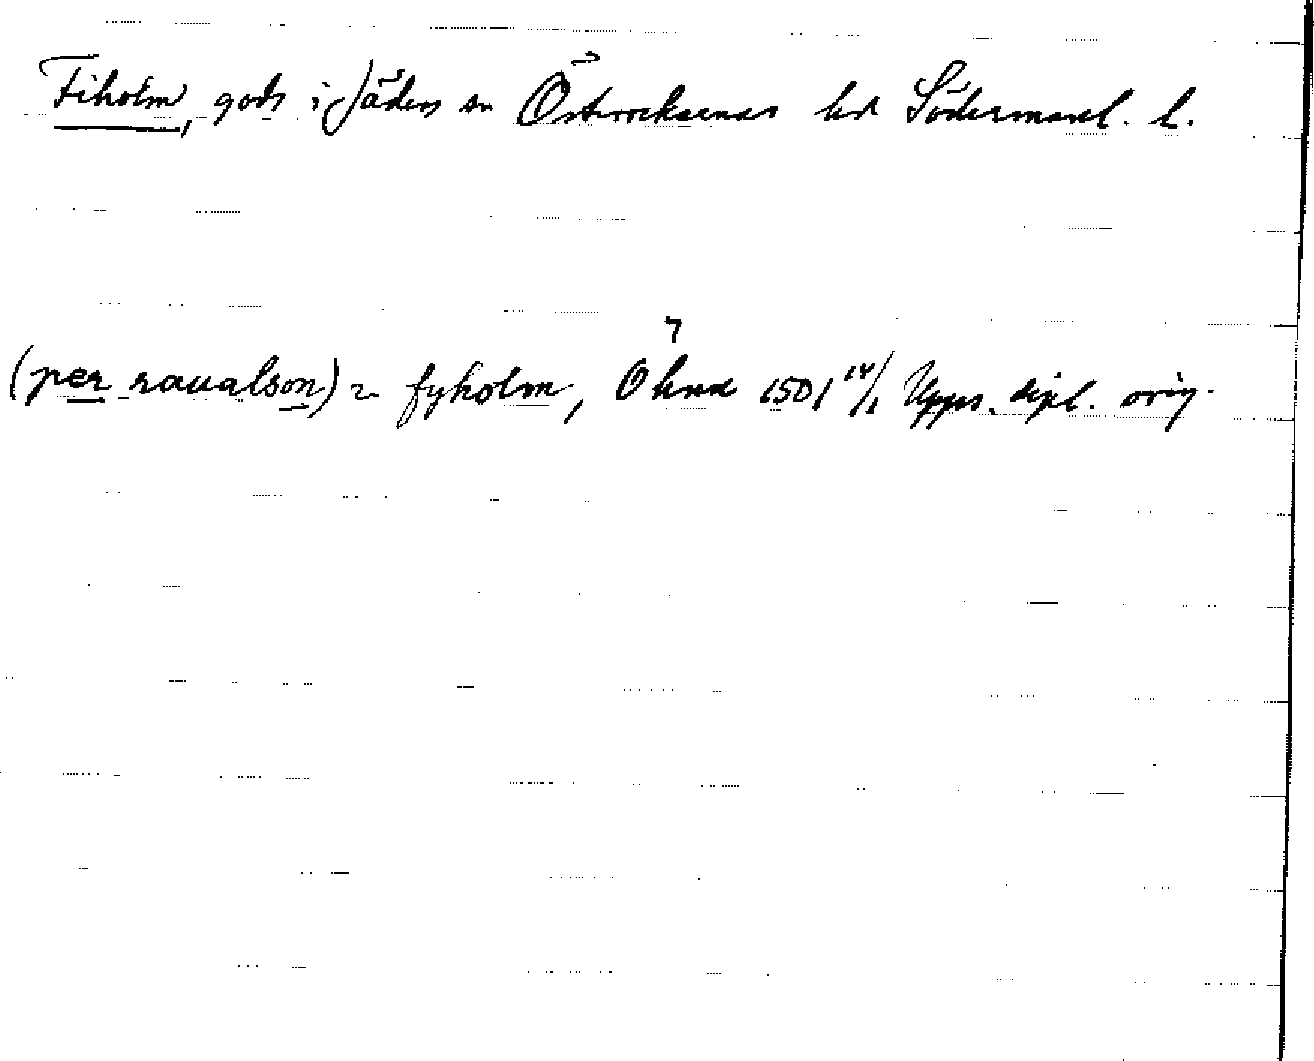 Fiholm, gods i Jäders sn Österrekarnas hd Södermanl. l.
(per raualson) ~ fyholm, Ohna 1501 14/1 Upps. dipl. orig.